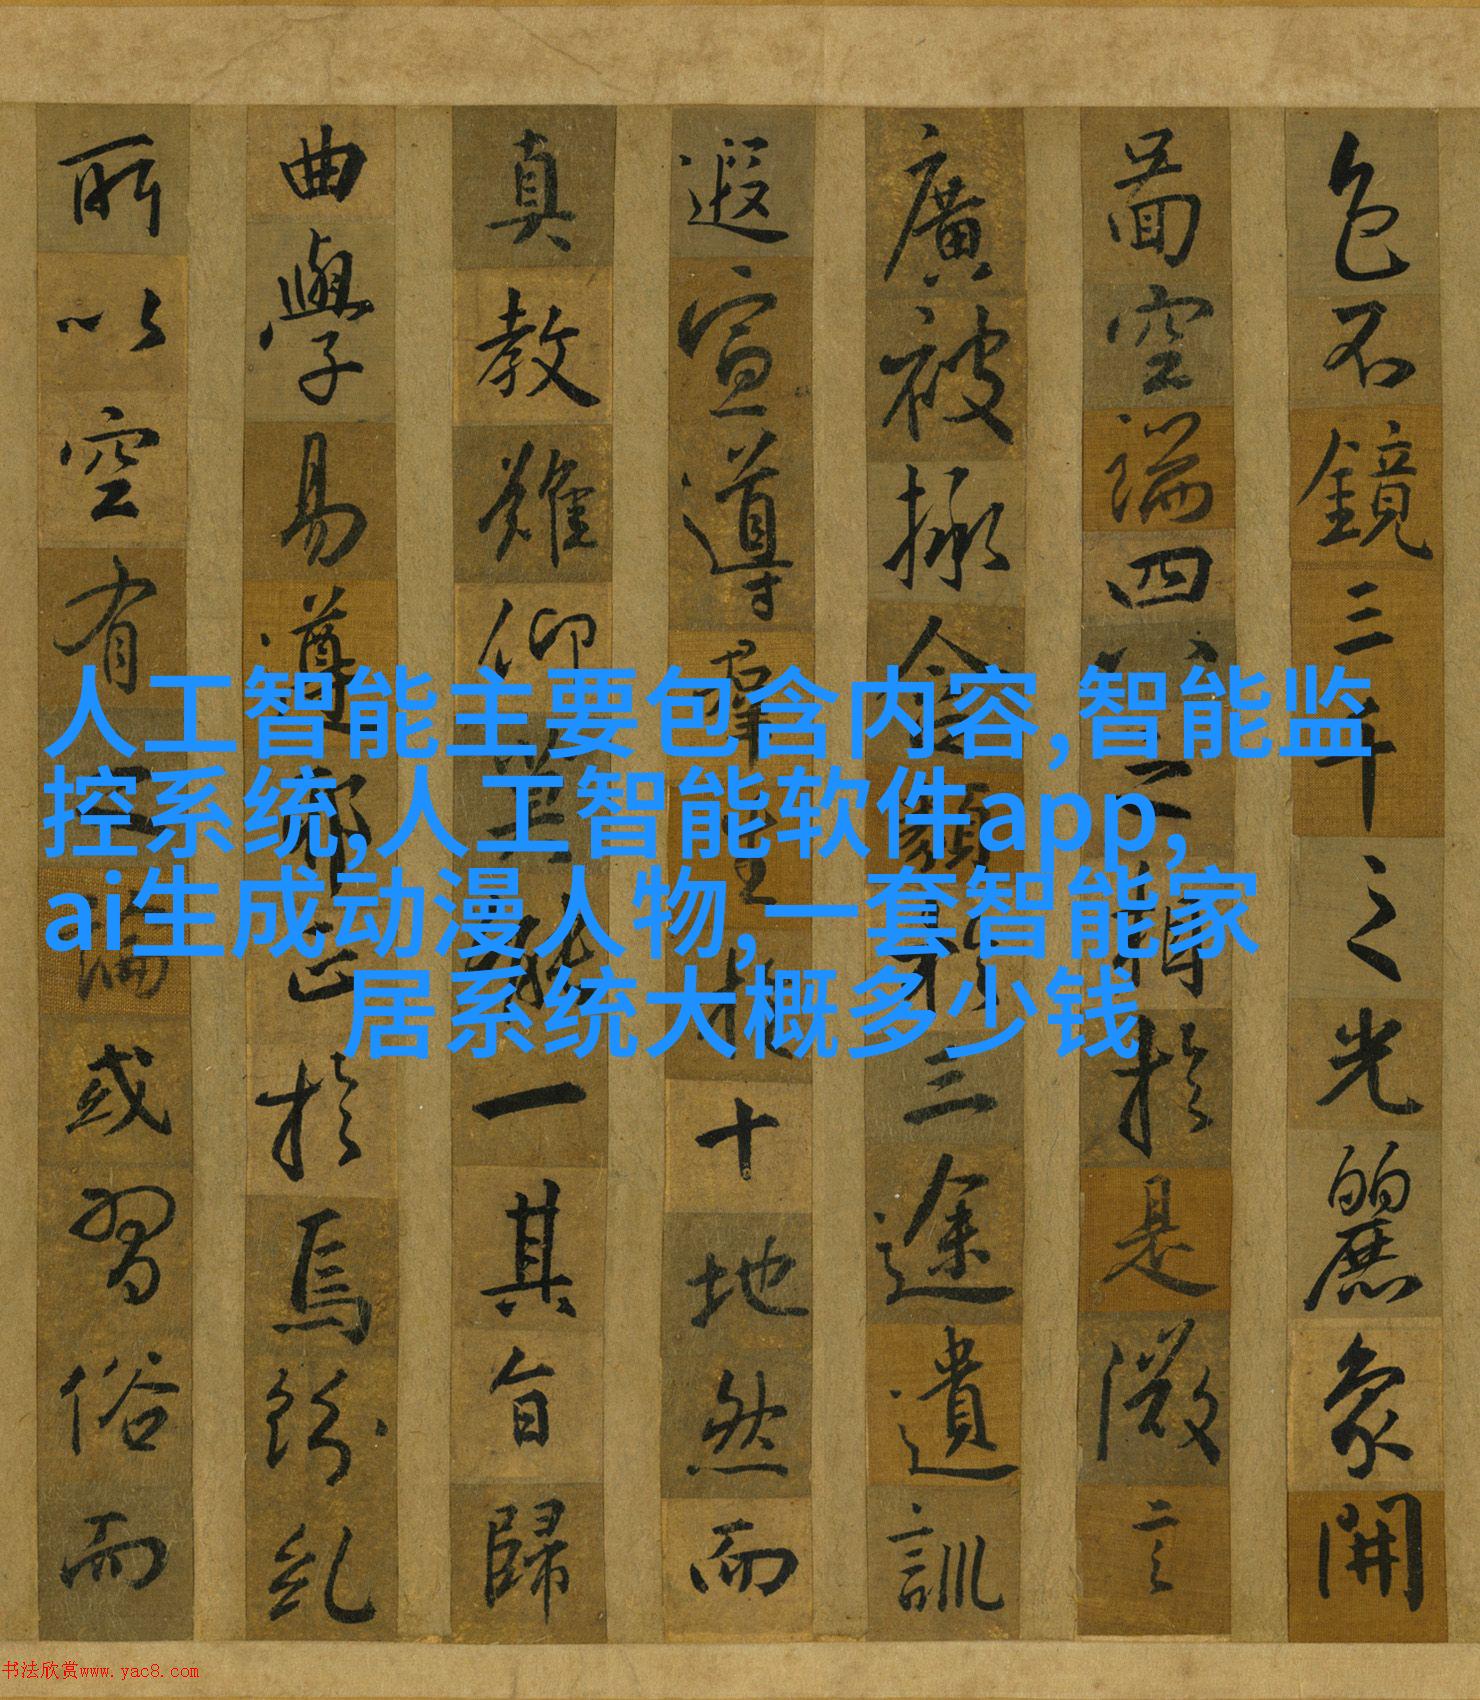 色不鏡三千之光麗象開
啚空端四八之相於是微言
廣被拯含類於三途遺訓
遐宣導羣生於十地然而
真教難仰莫能一其旨歸
曲學易遵邪正於焉紛糺
所以空有之論或習俗而
人工智能主要包含内容,智能监
控系统,人工智能软件app,
ai生成动漫人物,一套智能家
居系统大概多少钱
书法欣赏www.yac8.com